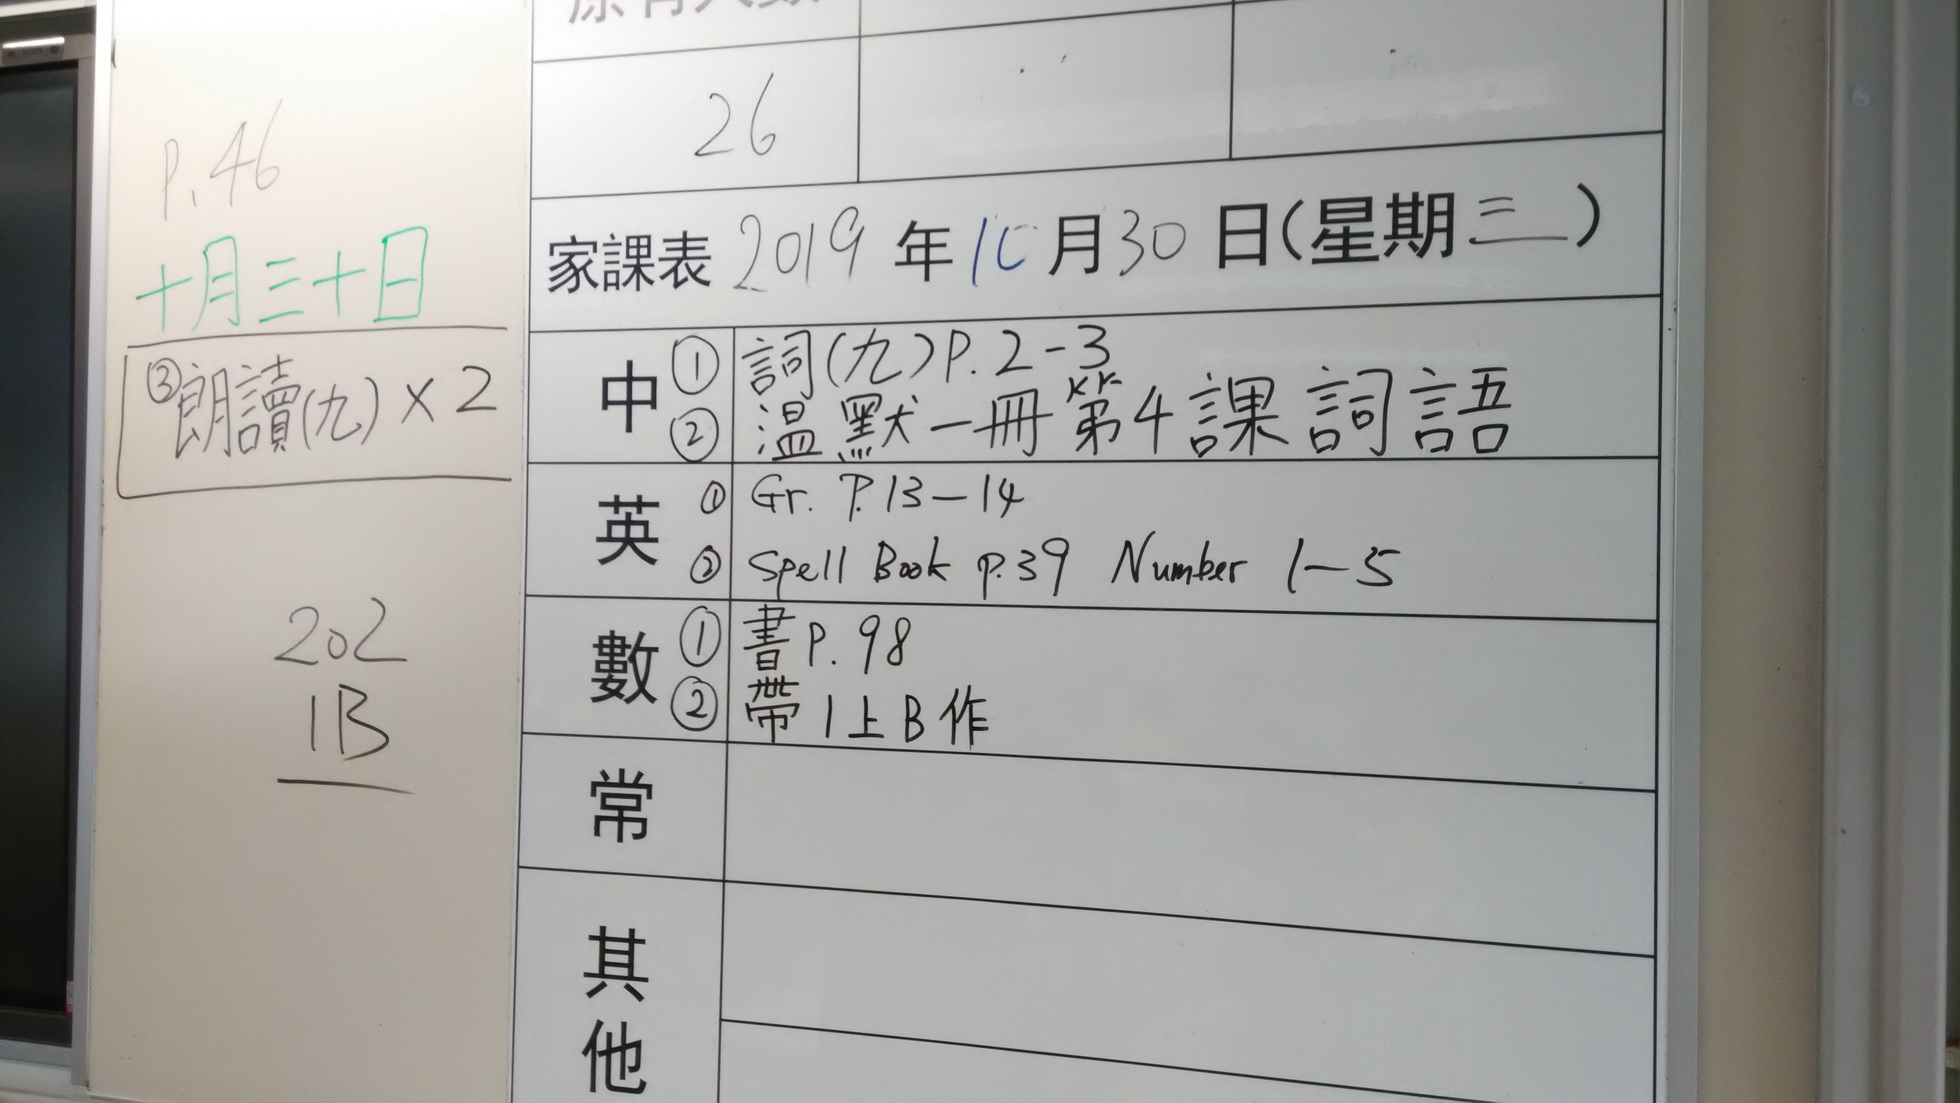 原有人數
26
家課表 2019 年 10 月 30 日(星期三)
中 ① 詞(九)P.2-3
② 溫默一冊第4課詞語
英 ① Gr. P.13-14
② Spell Book p.39 Number 1-5
數 ① 書P.98
② 帶1上B作
常
其他
P.46
十月三十日
③朗讀(九)×2
202
1B